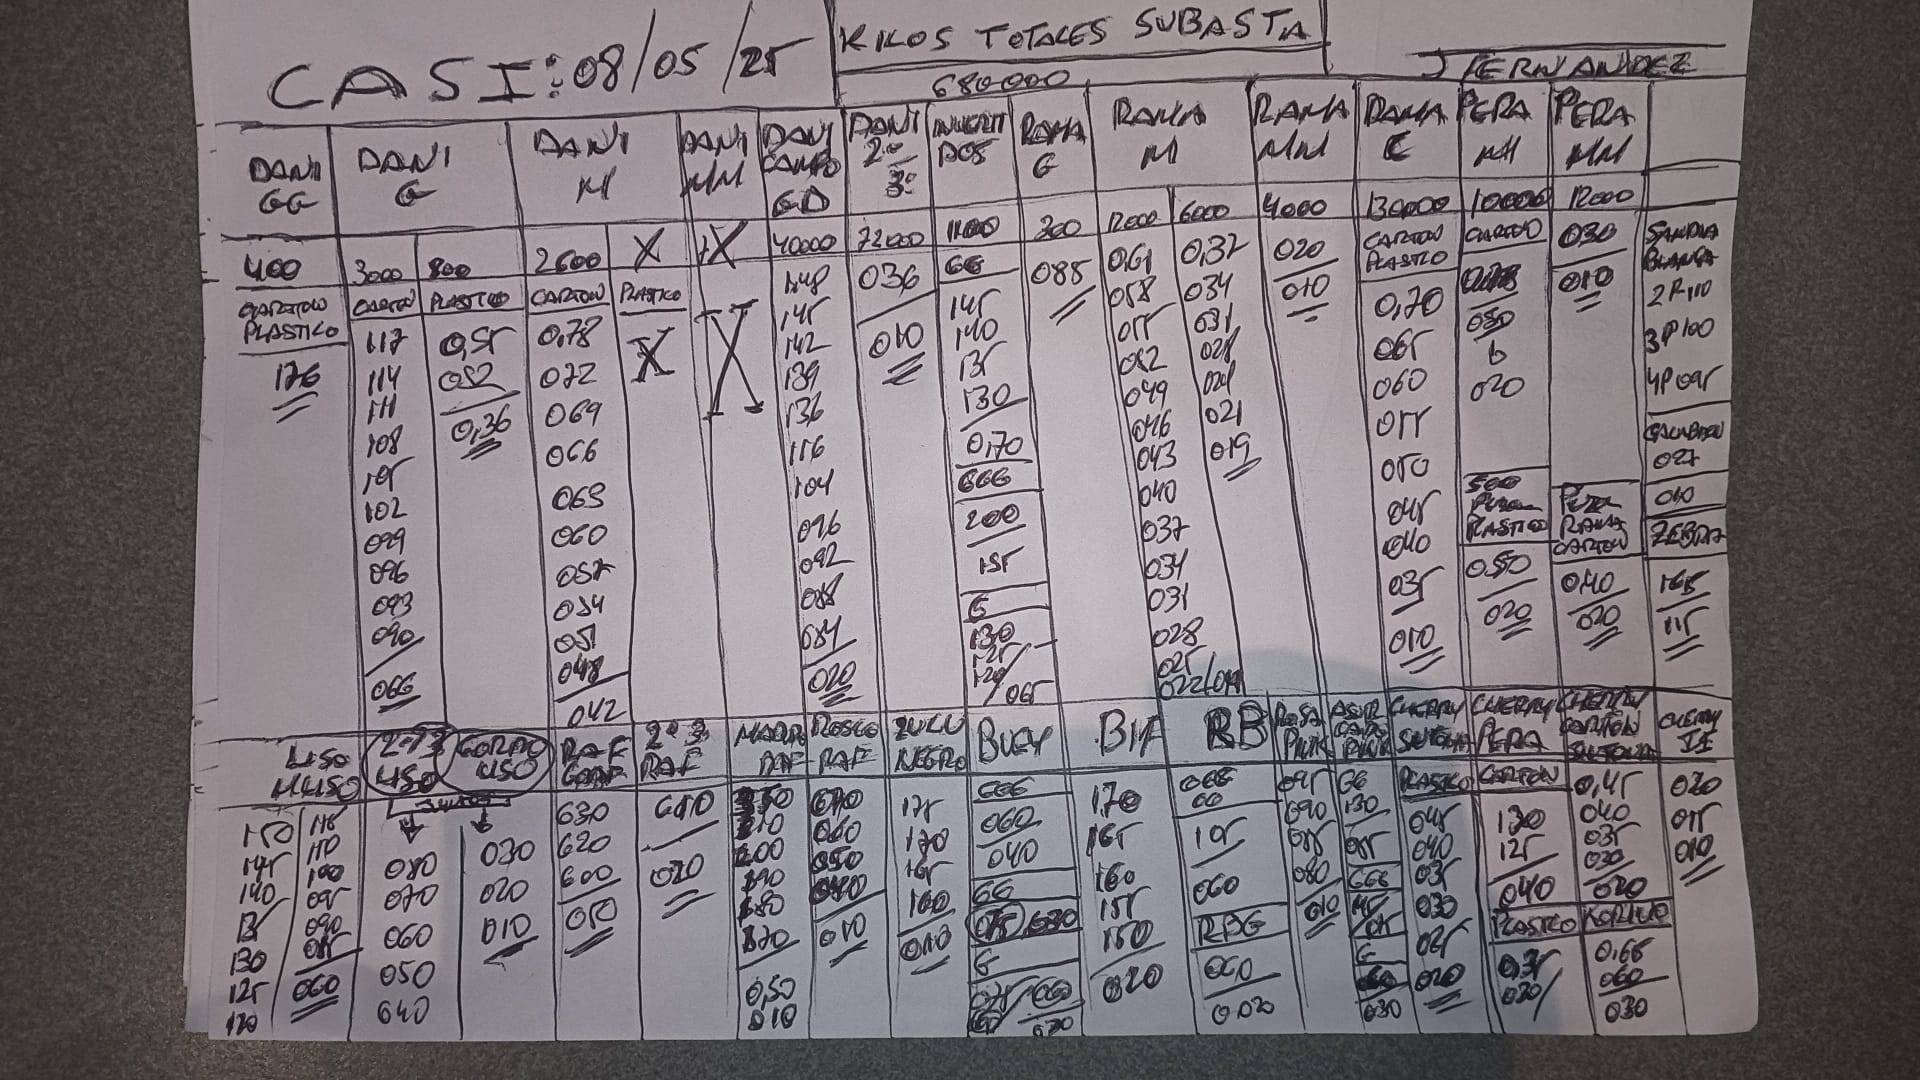 CASI: 08/05/25
KILOS TOTALES SUBASTA
680000
J FERNANDEZ
DANI GG
400
CARTON
PLASTICO
126
DANI G
3000
800
CARTON
PLASTICO
117
114
111
108
105
102
099
096
093
090
066
0,55
052
0,36
DANI M
2600
X
CARTON
PLASTICO
0,78
072
069
066
063
060
057
054
051
048
042
X
DANI MM
X
X
DANI
CAMPO
GD
40000
148
145
142
139
136
116
104
096
092
088
084
020
DANI
2º
3º
72000
036
010
INVERTI
DOS
11000
GG
145
140
135
130
0,70
GGG
200
155
G
130
125
120
065
RAMA
G
300
085
RAMA
M
12000
6000
0,61
058
055
052
049
046
043
040
037
034
031
028
025
022/019
0,37
034
031
028
021
019
RAMA
MM
4000
020
010
RAMA
C
130000
CARTON
PLASTICO
0,70
065
060
055
050
045
040
035
010
PERA
M
10000
CARTON
030
b
020
500
PERA
PLASTICO
0,50
020
PERA
MM
12000
030
010
PERA
RAMA
CARTON
0,40
020
SANDIA
BLANCA
2P110
3P100
4P095
CALABACIN
027
010
ZEBRA
165
115
LISO
MLISO
150
145
140
135
130
125
120
115
110
100
095
090
085
060
2ª3ª
LISO
080
070
060
050
040
GORDO
LISO
030
020
010
RAF
GORDO
630
620
600
050
2ª 3ª
RAF
020
MADURO
RAF
200
190
180
170
0,50
010
ROSCO
RAF
070
060
050
040
010
ZULU
NEGRO
175
170
165
160
010
BUEY
GGG
060
040
GG
030
G
BIF
170
165
160
155
150
020
RB
GGG
GG
105
060
RBG
060
0,020
ROSA
PINK
095
090
085
080
010
PINK
GG
130
085
GGG
G
030
CHERRY
SINTONIA
PLASTICO
045
040
035
030
025
020
CHERRY
PERA
CARTON
130
125
040
PLASTICO
0,35
030
CHERRY
CARTON
SINTONIA
0,45
040
035
030
020
0,65
060
030
CHERRY
II
020
015
010